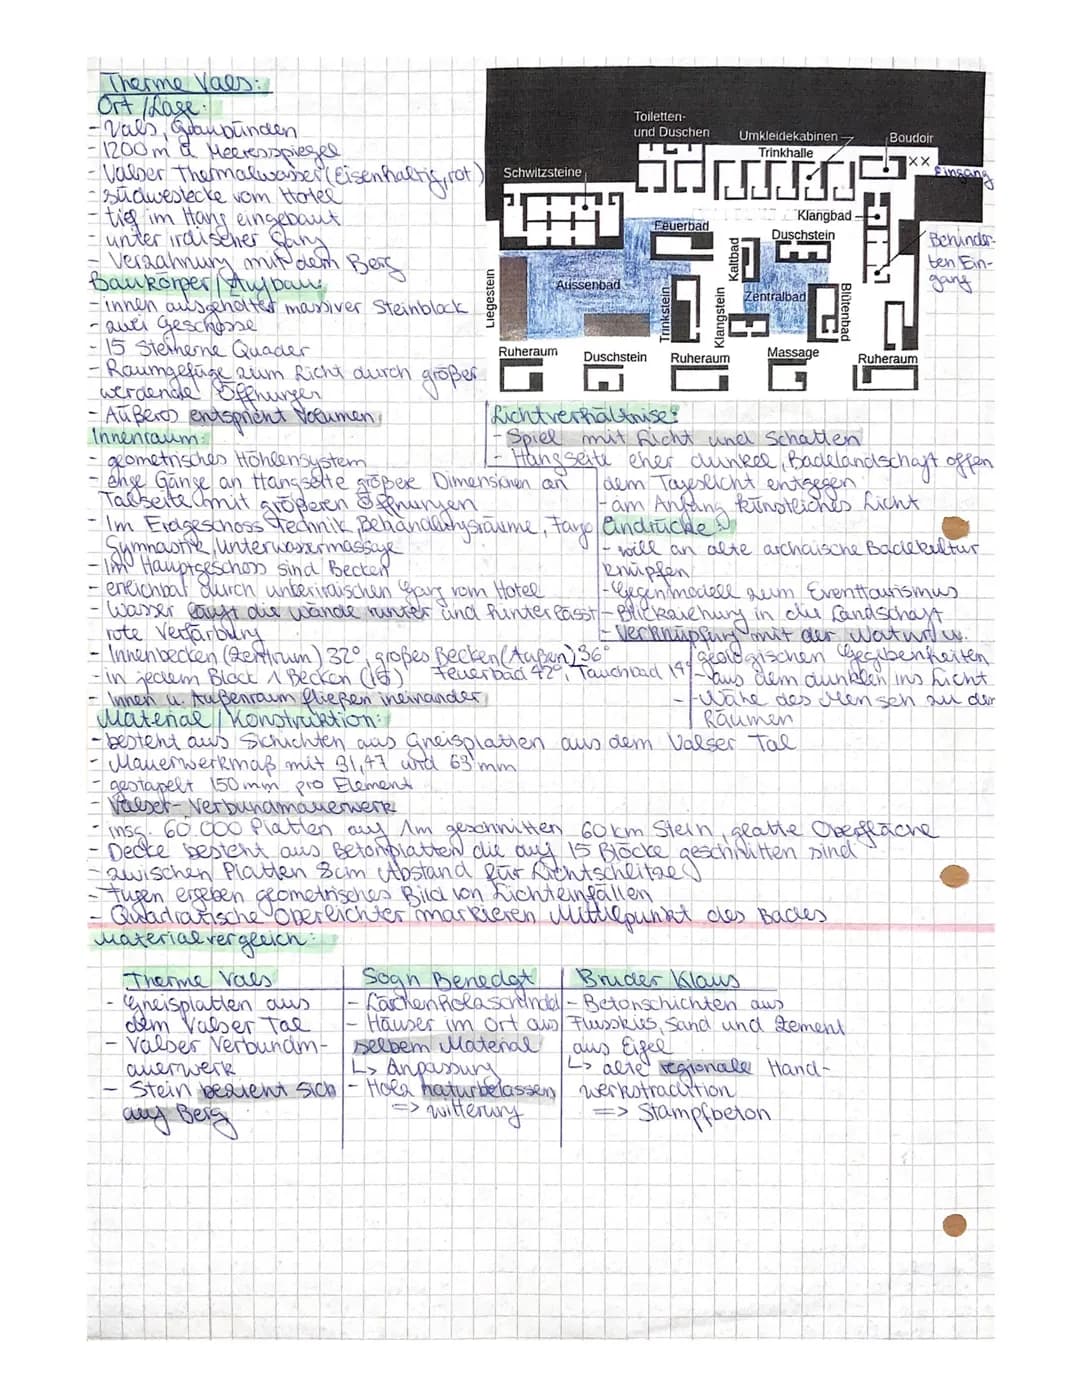 Therme Vals:
Ort / Lage:
- Vals, Graubünden
- 1200 m ü Meeresspiegel
- Valser Thermalwasser (Eisenhaltig, rot)
- Südwestecke vom Hotel
- tief im Hang eingebaut
- unter irdischer Gang
- Verzahnung mit dem Berg
Baukörper / Aufbau:
- innen ausgehölter massiver Steinblock
- zwei Geschosse
- 15 Steinerne Quader
- Raumgefüge zum Licht durch größer
werdende Öffnungen
- Äußeres entspricht Volumen
Innenraum:
- geometrisches Höhlensystem
- enge Gänge an Hangseite größere Dimensionen an
Talseite mit größeren Öffnungen
- Im Erdgeschoss Technik, Behandlungsräume, Fango
Gymnastik, Unterwassermassage
- Im Hauptgeschoss sind Becken
- erreichbar durch unterirdischen Gang vom Hotel
- Wasser läuft die Wände runter und hinterlässt
rote Verfärbung
- Innenbecken (Zentrum) 32°, großes Becken (Außen) 36°
- in jedem Block 1 Becken (15) Feuerbad 42°, Tauchbad 14°
- Innen u. Außenraum fließen ineinander
Toiletten-
und Duschen
Umkleidekabinen
Boudoir
Trinkhalle
XX
Eingang
Schwitzsteine
Klangbad
Feuerbad
Duschstein
Behinder-
ten Ein-
gang
Kaltbad
Aussenbad
Zentralbad
Liegestein
Trinkstein
Klangstein
Blütenbad
Ruheraum
Duschstein
Ruheraum
Massage
Ruheraum
Lichtverhältnisse:
- Spiel mit Licht und Schatten
- Hangseite eher dunkel, Badelandschaft offen
dem Tageslicht entgegen
- am Anfang künstliches Licht
Eindrücke:
- will an alte archaische Badekultur
knüpfen
- Gegenmodell zum Eventtourismus
- Blickziehung in die Landschaft
- Verknüpfung mit der Natur u.
geologischen Gegebenheiten
- aus dem dunklen ins Licht
- Nähe des Menschen zu den
Räumen
Material / Konstruktion:
- besteht aus Schichten aus Gneisplatten aus dem Valser Tal
- Mauerwerkmaß mit 31,47 und 63 mm
- gestapelt 150 mm pro Element
- Valser-Verbundmauerwerk
- insg. 60.000 Platten auf 1m geschnitten 60 km Stein, glatte Oberfläche
- Decke besteht aus Betonplatten die auf 15 Blöcke geschnitten sind
- zwischen Platten 8cm Abstand für Lichtschlitze
- Fugen ergeben geometrisches Bild von Lichteinfällen
- Quadratische Oberlichter markieren Mittelpunkt des Bades
Materialvergleich:
Therme Vals
- Gneisplatten aus
dem Valser Tal
- Valser Verbundm-
auerwerk
- Stein bezieht sich
auf Berg
Sogn Benedgt
- Lärchenholzschindel
- Häuser im Ort aus
selbem Material
↳ Anpassung
- Holz naturbelassen
=> witterung
Bruder Klaus
- Betonschichten aus
Flusskies, Sand und Zement
aus Eifel
↳ alte regionale Hand-
werkstradition
=> Stampfbeton